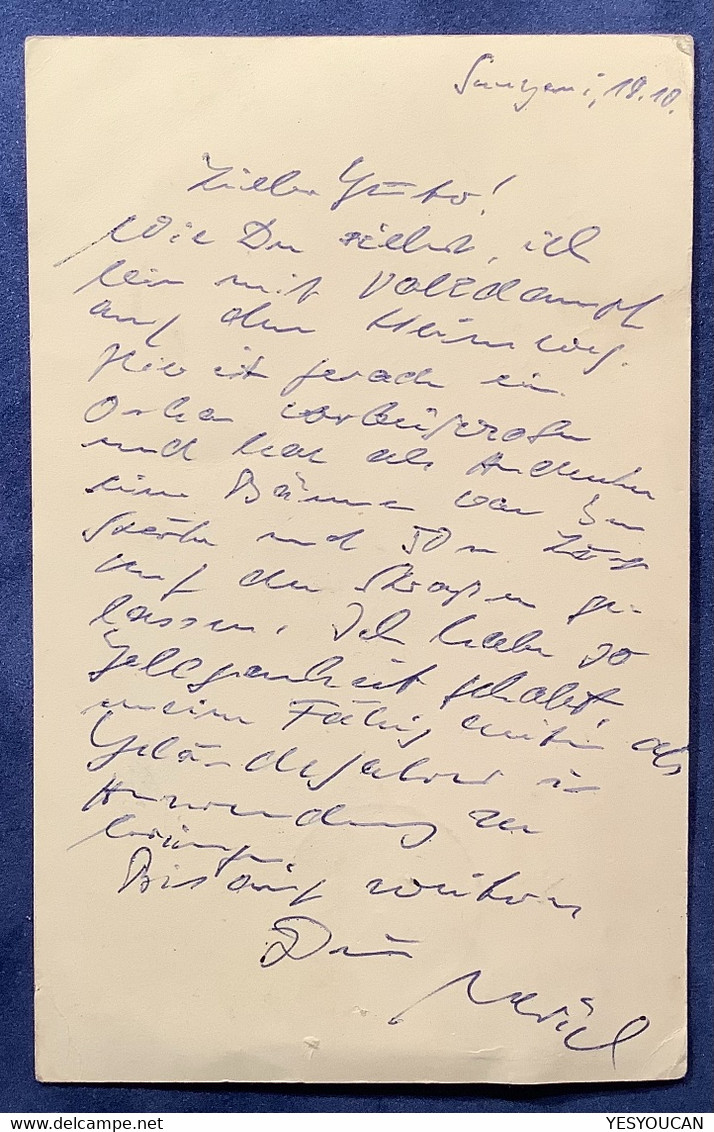 18.10.
Lieber Günter!
Wie Du siehst, ich
bin mit Volldampf
auf dem Heimweg.
Hier ist gerade ein
Orkan vorbeigezogen
und hat als Andenken
eine Bäume von 3m
Stärke und 50m Länge
auf den Straßen ge-
lassen. Ich habe so
Gelegenheit gehabt,
meine Fähigkeiten als
Geländefahrer in
Anwendung zu
bringen.
Bis auf weiteres
Dein
YESYOUCAN